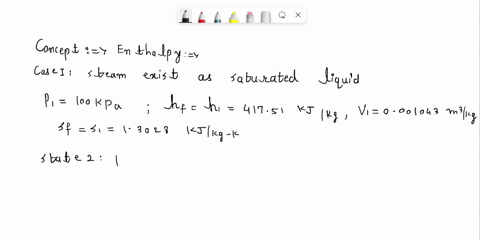 Concept :=> Enthalpy :=>
Case I: steam exist as saturated liquid
P1 = 100 kPa ; hf = h1 = 417.51 KJ/kg, V1 = 0.001043 m³/kg
sf = s1 = 1.3028 KJ/kg-K
state 2: |